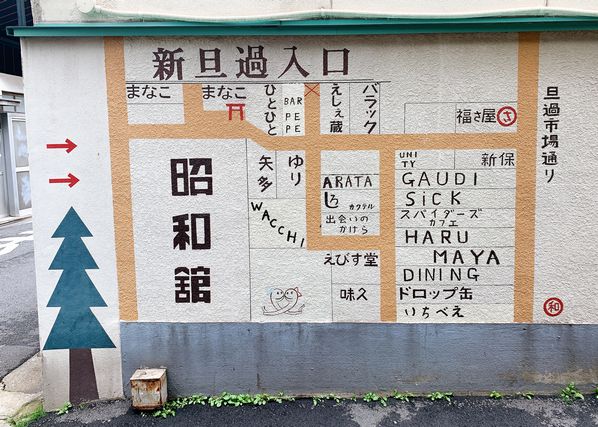 新旦過入口
まなこ
まなこ
ひとひと
BAR
PE
PE
えしぇ蔵
バラック
福さ屋
さ
旦過市場通り
昭和舘
矢多
ゆり
WACCHI
ARATA
しろ
カクテル
出会いの
かけら
えびす堂
味久
UNI
TY
新保
GAUDI
SiCK
スパイダーズ
カフェ
HARU
MAYA
DINING
ドロップ缶
いちべえ
和